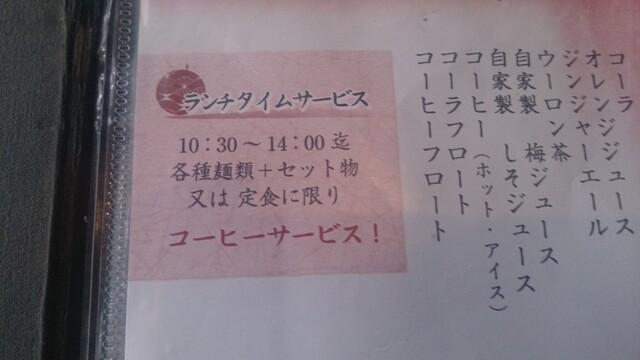 ランチタイムサービス
10：30〜14：00迄
各種麺類＋セット物
又は 定食に限り
コーヒーサービス！
コーラ
オレンジジュース
ジンジャーエール
ウーロン茶
自家製 梅ジュース
自家製 しそジュース
コーヒー（ホット・アイス）
コーラフロート
コーヒーフロート